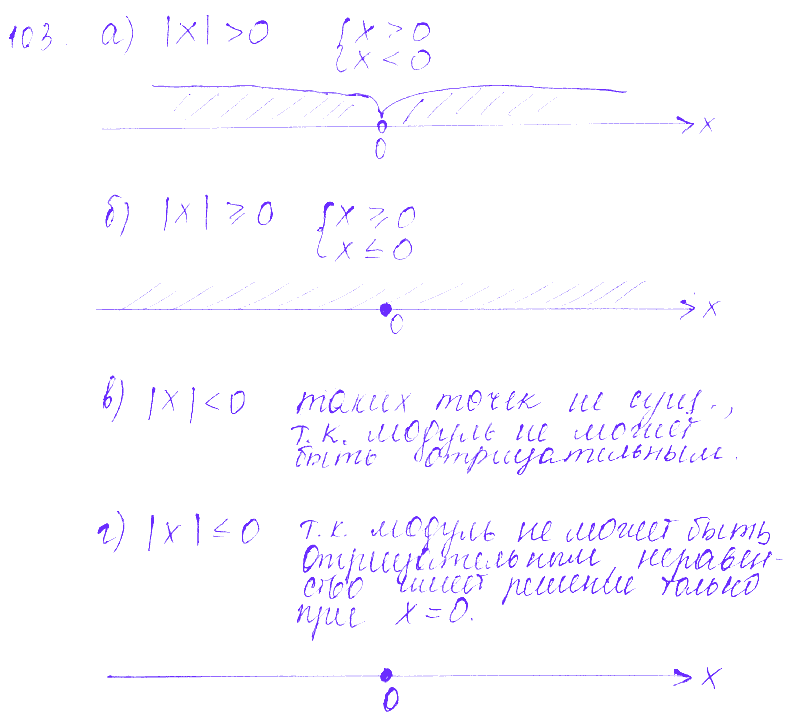 103. а) |x| > 0 { x > 0
{ x < 0
x
0
б) |x| ⩾ 0 { x ⩾ 0
{ x ≤ 0
x
0
в) |x| < 0 таких точек не сущ.,
т.к. модуль не может
быть отрицательным.
г) |x| ≤ 0 т.к. модуль не может быть
отрицательным, неравен-
ство имеет решение только
при x = 0.
x
0